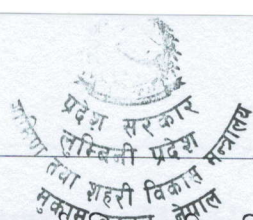 प्रदेश सरकार
लुम्बिनी प्रदेश
ग्रामिण तथा शहरी विकास मन्त्रालय
नेपाल